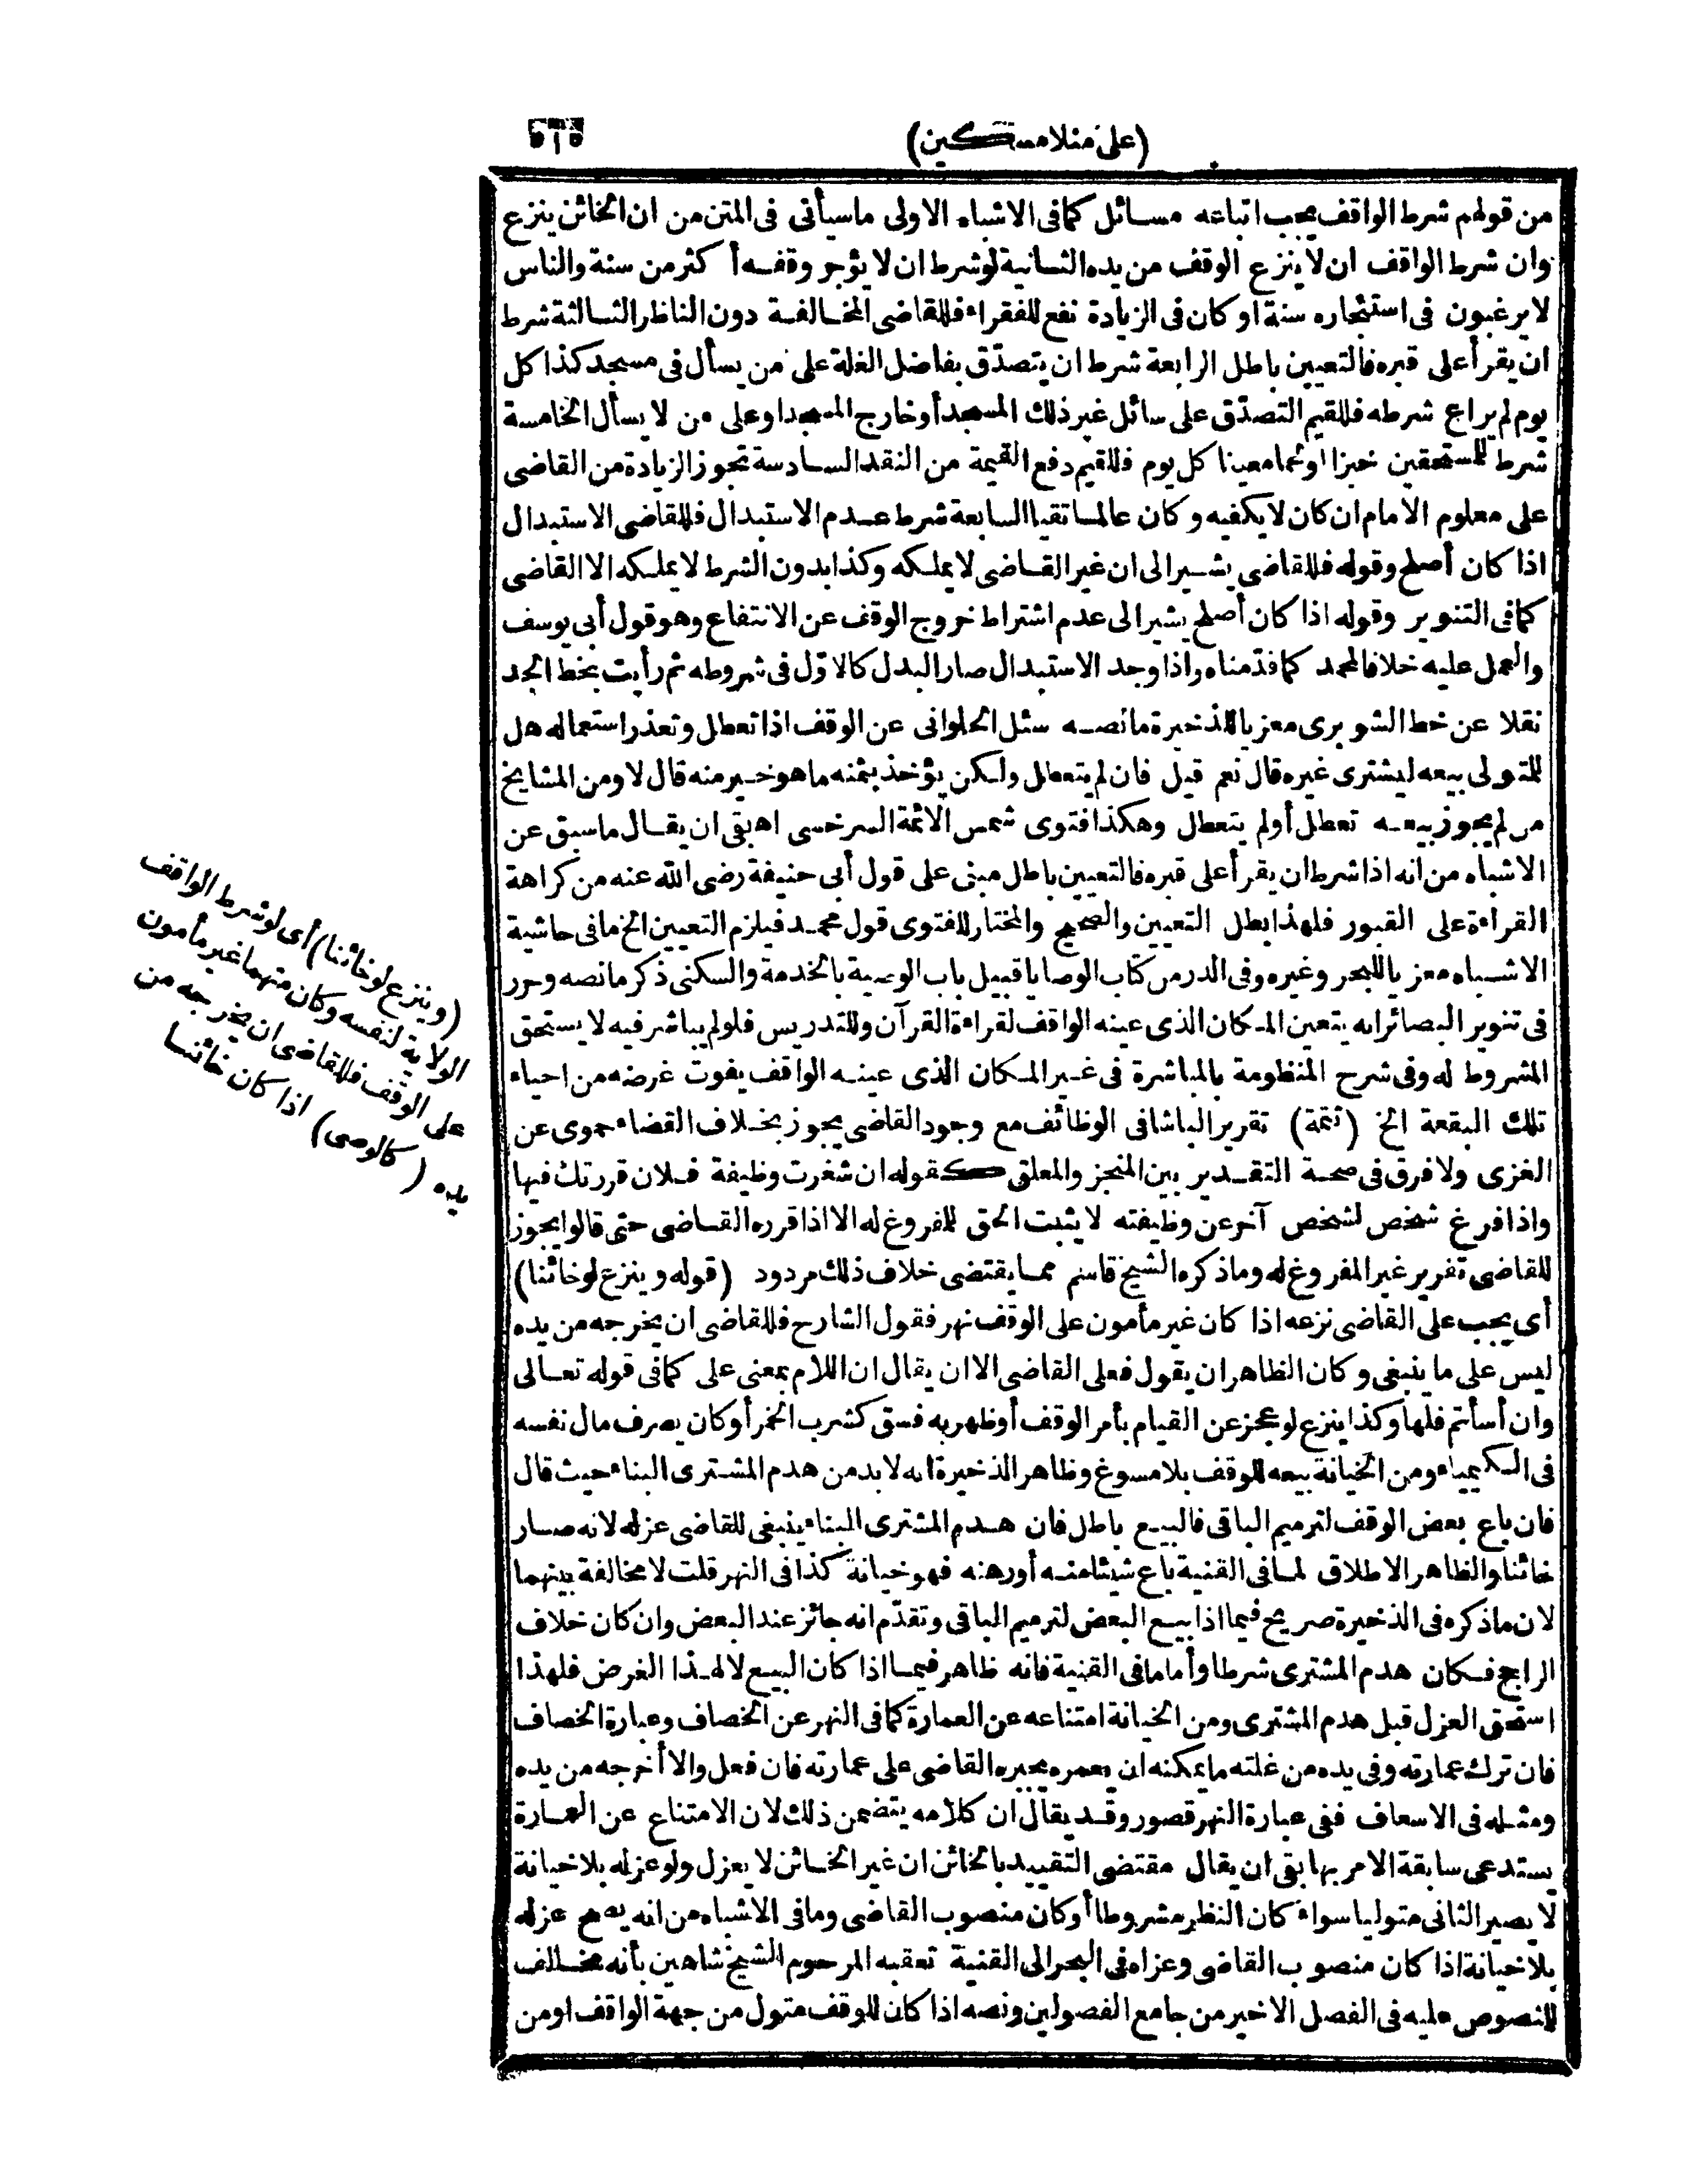 (على منلا مسكين)
٥١٥
من قولهم شرط الواقف يجب اتباعه مسائل كمافى الاشباه الاولى ماسيأتى فى المتن من ان الخائن ينزع
وان شرط الواقف ان لا ينزع الوقف من يده الثانية لوشرط ان لا يؤجر وقفه أكثر من سنة والناس
لا يرغبون فى استئجاره سنة او كان فى الزيادة نفع للفقراء فللقاضى المخالفة دون الناظر الثالثة شرط
ان يقرأ على قبره فالتعيين باطل الرابعة شرط ان يتصدّق بفاضل الغلة على من يسأل فى مسجد كذا كل
يوم لم يراع شرطه فللقيم التصدّق على سائل غير ذلك المسجد أو خارج المسجد او على من لا يسأل الخامسة
شرط للمستحقين خبزا او لحما معينا كل يوم فللقيم دفع القيمة من النقد السادسة تجوز الزيادة من القاضى
على معلوم الامام ان كان لا يكفيه وكان عالما تقيا السابعة شرط عدم الاستبدال فللقاضى الاستبدال
اذا كان أصلح وقوله فللقاضى يشير الى ان غير القاضى لا يملكه وكذا بدون الشرط لا يملكه الا القاضى
كمافى التنوير وقوله اذا كان أصلح يشير الى عدم اشتراط خروج الوقف عن الانتفاع وهو قول أبى يوسف
والعمل عليه خلافا لمحمد كما قدّمناه واذا وجد الاستبدال صار البدل كالاوّل فى شروطه ثم رأيت بخط الجد
نقلا عن خط الشوبرى معزيا للذخيرة مانصه سئل الحلوانى عن الوقف اذا تعطل وتعذر استعماله هل
للمتولى بيعه ليشترى غيره قال نعم قيل فان لم يتعطل ولكن يؤخذ بثمنه ما هو خير منه قال لا ومن المشايخ
من لم يجوز بيعه تعطل أو لم يتعطل وهكذا فتوى شمس الائمة السرخسى اه بقى ان يقال ماسبق عن
الاشباه من انه اذا شرط ان يقرأ على قبره فالتعيين باطل مبنى على قول أبى حنيفة رضى الله عنه من كراهة
القراءة على القبور فلهذا بطل التعيين والصحيح والمختار للفتوى قول محمد فيلزم التعيين الخ مافى حاشية
الاشباه معزيا للبحر وغيره وفى الدر من كتاب الوصايا قبيل باب الوصية بالخدمة والسكنى ذكر مانصه وحرر
فى تنوير البصائر انه يتعين المكان الذى عينه الواقف لقراءة القرآن وللتدريس فلو لم يباشر فيه لا يستحق
المشروط له وفى شرح المنظومة بالمباشرة فى غير المكان الذى عينه الواقف يفوت غرضه من احياء
تلك البقعة الخ (تتمة) تقرير الباشا فى الوظائف مع وجود القاضى يجوز بخلاف القضاء حموى عن
الغزى ولا فرق فى صحة التقدير بين المنجز والمعلق كقوله ان شغرت وظيفة فلان قررتك فيها
واذا فرغ شخص لشخص آخر عن وظيفته لا يثبت الحق للمفروغ له الا اذا قرره القاضى حتى قالوا يجوز
للقاضى تقرير غير المفروغ له وما ذكره الشيخ قاسم مما يقتضى خلاف ذلك مردود (قوله وينزع لو خائنا)
أى يجب على القاضى نزعه اذا كان غير مأمون على الوقف نهر فقول الشارح فللقاضى ان يخرجه من يده
ليس على ما ينبغى وكان الظاهر ان يقول فعلى القاضى الا ان يقال ان اللام بمعنى على كمافى قوله تعالى
وان أسأتم فلها وكذا ينزع لو عجز عن القيام بأمر الوقف أو ظهر به فسق كشرب الخمر أو كان يصرف مال نفسه
فى الكيمياء ومن الخيانة بيعه للوقف بلا مسوغ وظاهر الذخيرة انه لا بد من هدم المشترى البناء حيث قال
فان باع بعض الوقف لترميم الباقى فالبيع باطل فان هدم المشترى البناء ينبغى للقاضى عزله لانه صار
خائنا والظاهر الاطلاق لما فى القنية باع شيئا منه أو رهنه فهو خيانة كذا فى النهر قلت لا مخالفة بينهما
لان ماذكره فى الذخيرة صريح فيما اذا بيع البعض لترميم الباقى وتقدّم انه جائز عند البعض وان كان خلاف
الراجح فكان هدم المشترى شرطا وأما مافى القنية فانه ظاهر فيما اذا كان البيع لا لهذا الغرض فلهذا
استحق العزل قبل هدم المشترى ومن الخيانة امتناعه عن العمارة كمافى النهر عن الخصاف وعبارة الخصاف
فان ترك عمارته وفى يده من غلته ما يمكنه ان يعمره يجبره القاضى على عمارته فان فعل والا أخرجه من يده
ومثله فى الاسعاف ففى عبارة النهر قصور وقد يقال ان كلامه يتضمن ذلك لان الامتناع عن العمارة
يستدعى سابقة الامر بها بقى ان يقال مقتضى التقييد بالخائن ان غير الخائن لا يعزل ولو عزله بلا خيانة
لا يصير الثانى متوليا سواء كان النظر مشروطا أو كان منصوب القاضى ومافى الاشباه من انه يصح عزله
بلا خيانة اذا كان منصوب القاضى وعزاه فى البحر الى القنية تعقبه المرحوم الشيخ شاهين بأنه مخالف
للنصوص عليه فى الفصل الاخير من جامع الفصولين ونصه اذا كان للوقف متول من جهة الواقف او من
(وينزع لو خائنا) أى لو شرط الواقف
الولاية لنفسه وكان متهما غير مأمون
على الوقف فللقاضى ان يخرجه من
يده (كالوصى) اذا كان خائنا